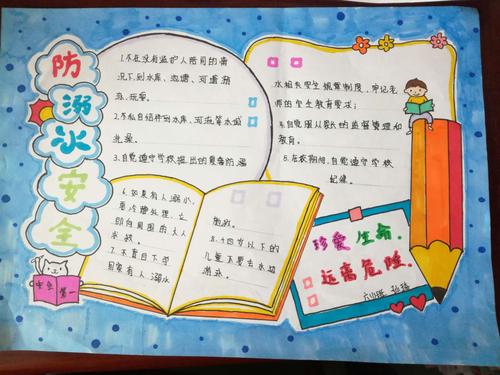 防溺水安全
1.不在没有监护人陪同的情
况下到水库、池塘、河道游
泳、玩耍。
2.不私自结伴到水库、河流等水域
3.自觉遵守学校提出的暑期防溺
水相关学生规章制度，牢记老
师的学生教育要求；
4.自觉服从家长的监督管理和
教育。
5.在农期间，自觉遵守学校
纪律。
6.如果有人溺水，
要冷静处理，立
即向周围的大人
求救。
7.不盲目下手
8.十四岁以下的
儿童不要去水域
游泳。
安全第一
珍爱生命.
远离危险.